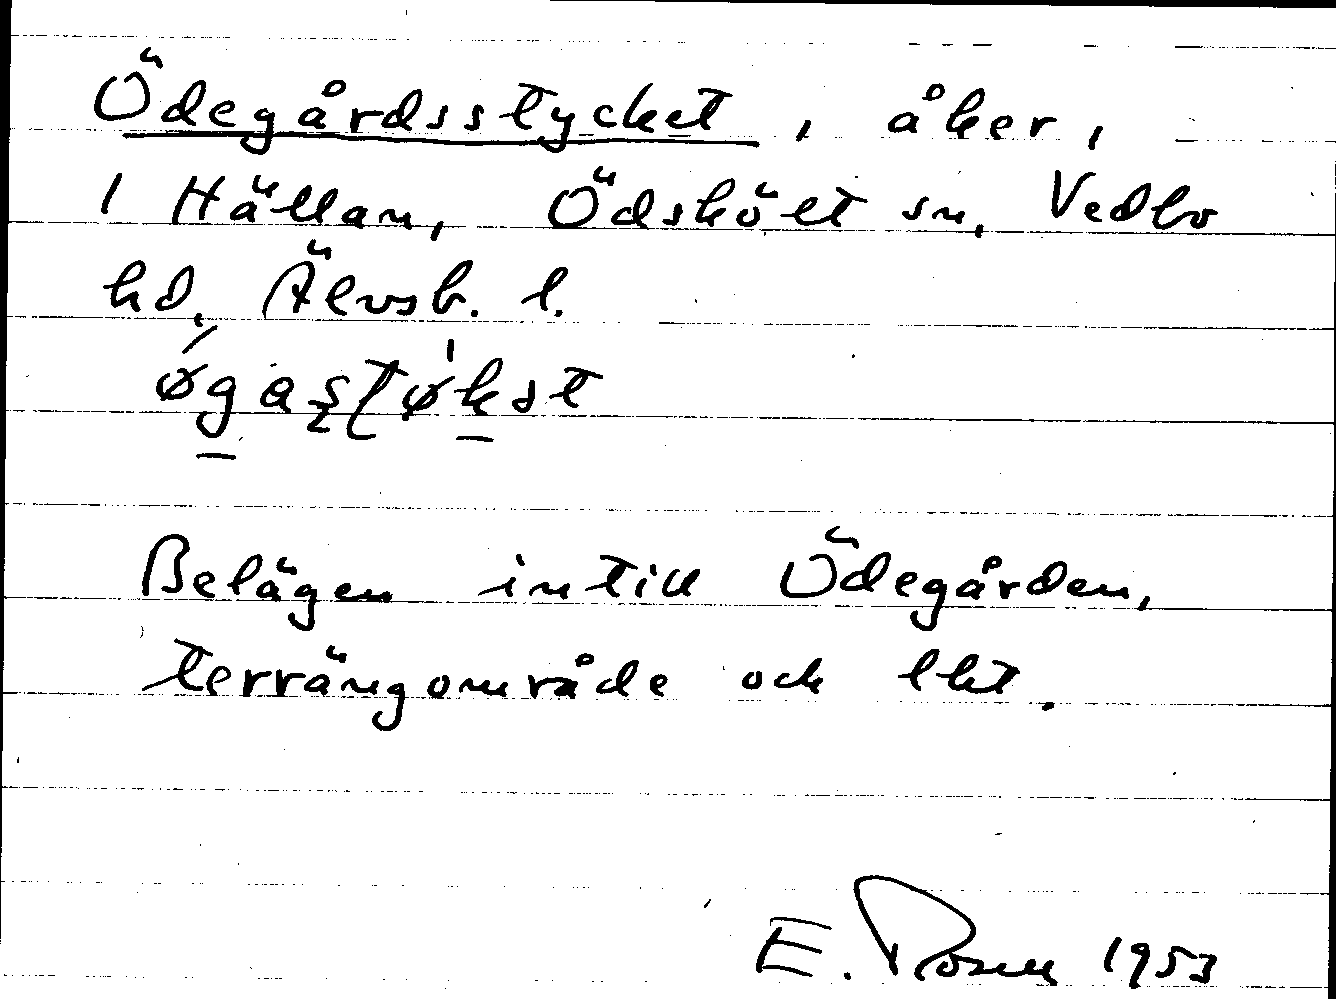 Ödegårdsstycket, åker,
1 Hällan, Ödskölt sn, Vedbo
hd, Älvsb. l.
øgaştøkst
Belägen intill Ödegården,
terrängområde och lht.
E. Rosell 1953